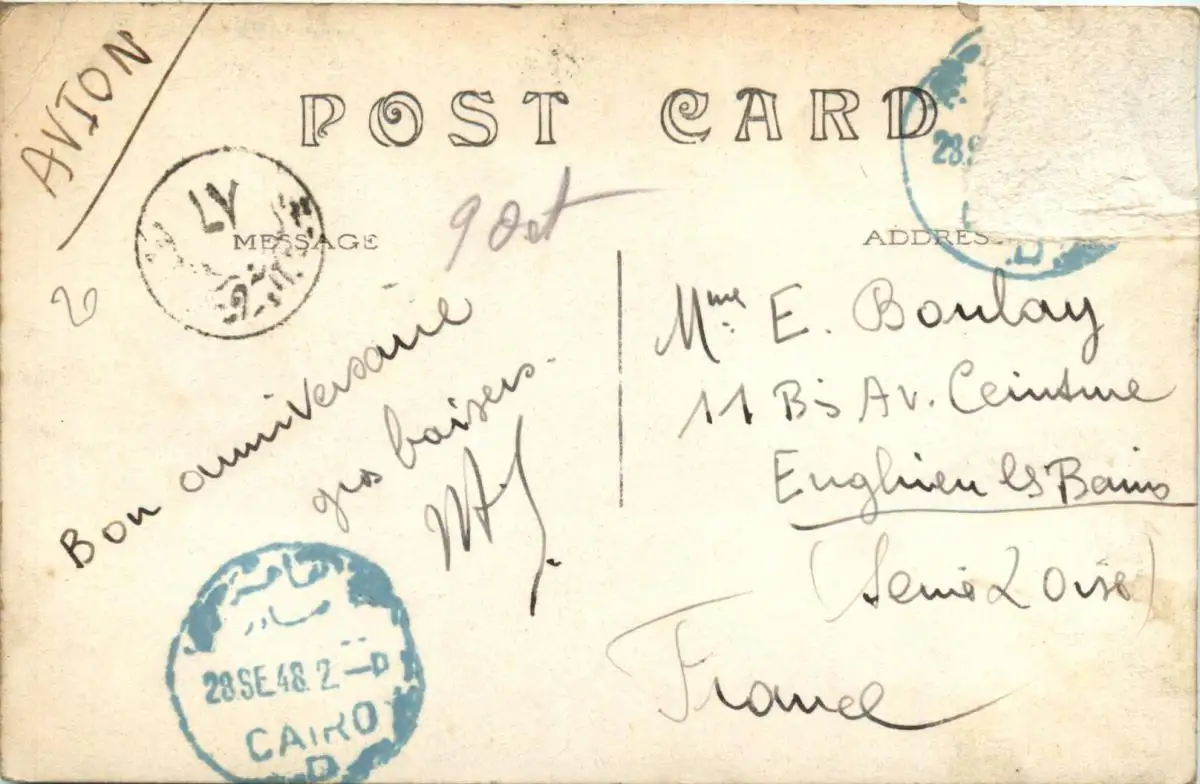 AVION
POST CARD
MESSAGE
9 Oct
ADDRES
28.S
D
Bon anniversaire
gros baisers.
Mme E. Boulay
11 Bis Av. Ceinture
Enghien les Bains
(Seine & Oise)
France
28SE.48.2—D
CAIRO
D